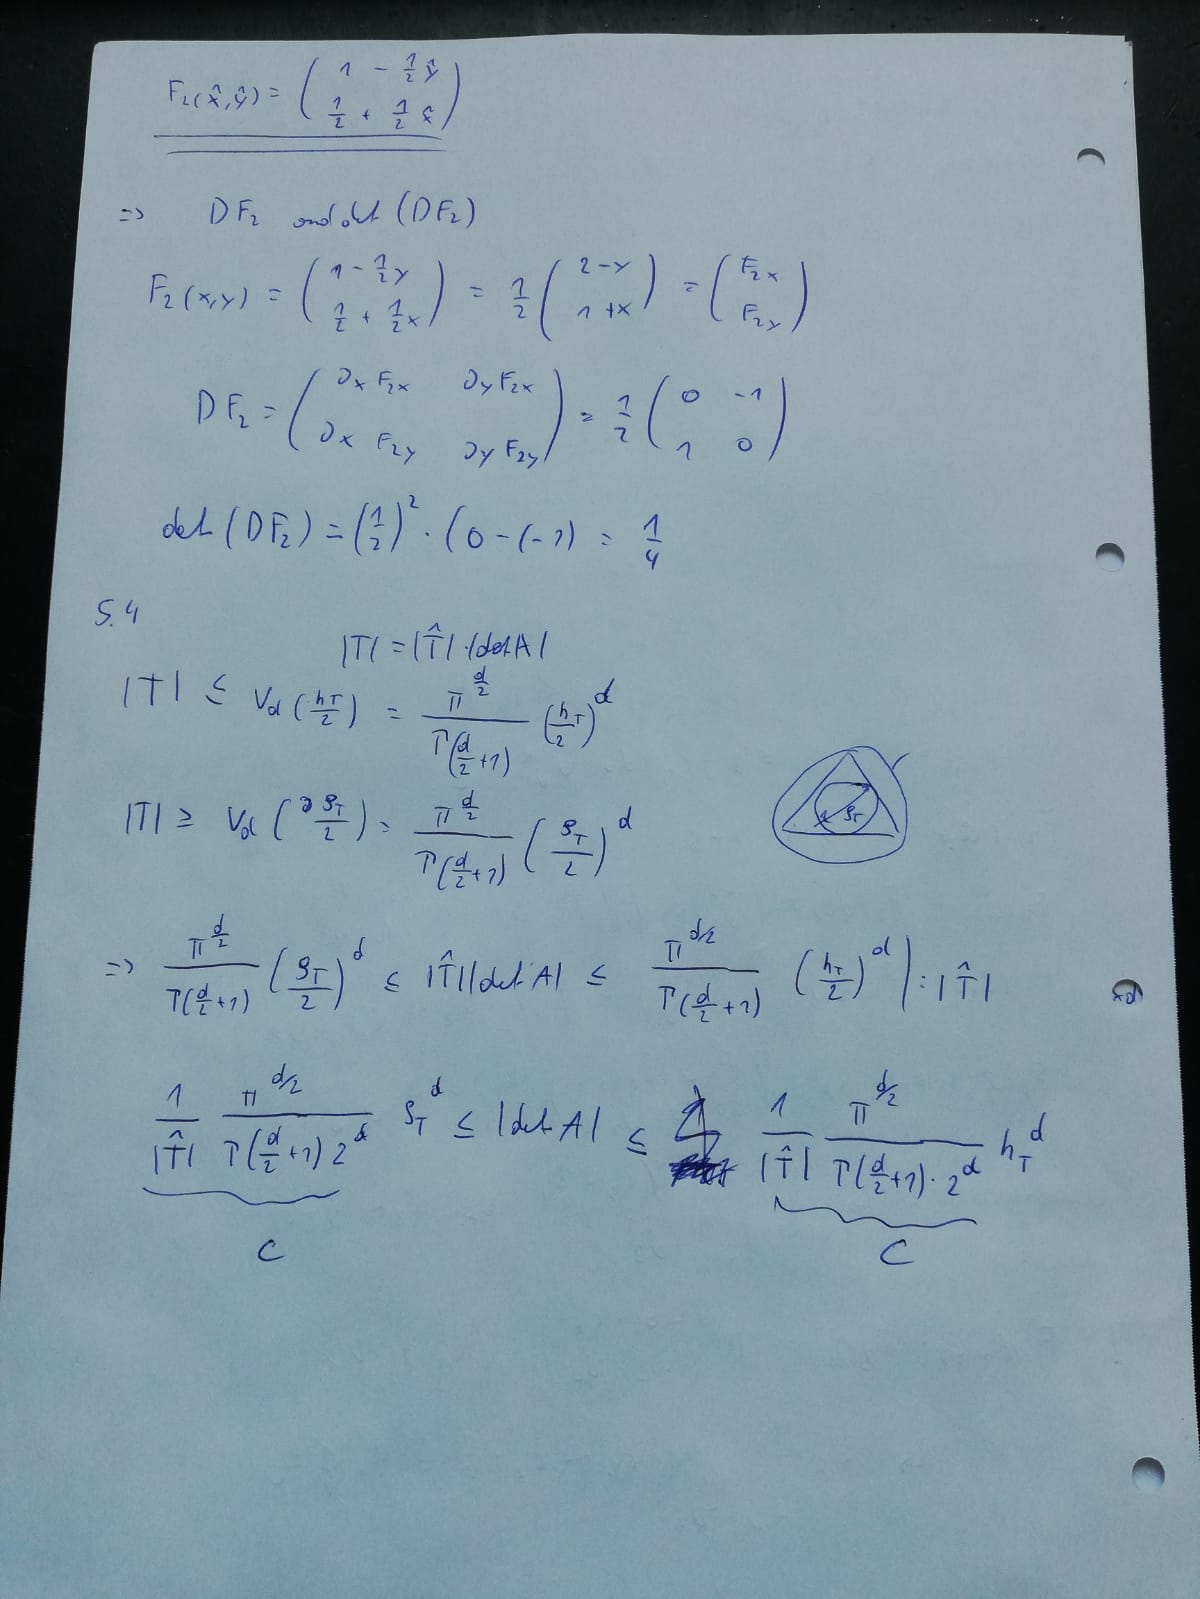 F₂(x̂,ŷ) = (1 - 1/2 ŷ; 1/2 + 1/2 x̂)
=> DF₂ und det (DF₂)
F₂(x,y) = (1 - 1/2 y; 1/2 + 1/2 x) = 1/2 (2-y; 1+x) = (F₂x; F₂y)
DF₂ = (∂x F₂x ∂y F₂x; ∂x F₂y ∂y F₂y) = 1/2 (0 -1; 1 0)
det (DF₂) = (1/2)² · (0 - (-1) = 1/4
5.4
|T| = |T̂| · |det A|
|T| ≤ V_d (h_T/2) = π^(d/2) / Γ(d/2 + 1) (h_T/2)^d
|T| ≥ V_d (ρ_T/2) = π^(d/2) / Γ(d/2 + 1) (ρ_T/2)^d
ρ_T
=> π^(d/2) / Γ(d/2 + 1) (ρ_T/2)^d ≤ |T̂| |det A| ≤ π^(d/2) / Γ(d/2 + 1) (h_T/2)^d | : |T̂|
1/|T̂| π^(d/2) / Γ(d/2 + 1) 2^d ρ_T^d ≤ |det A| ≤ 1/|T̂| π^(d/2) / Γ(d/2 + 1) · 2^d h_T^d
C C